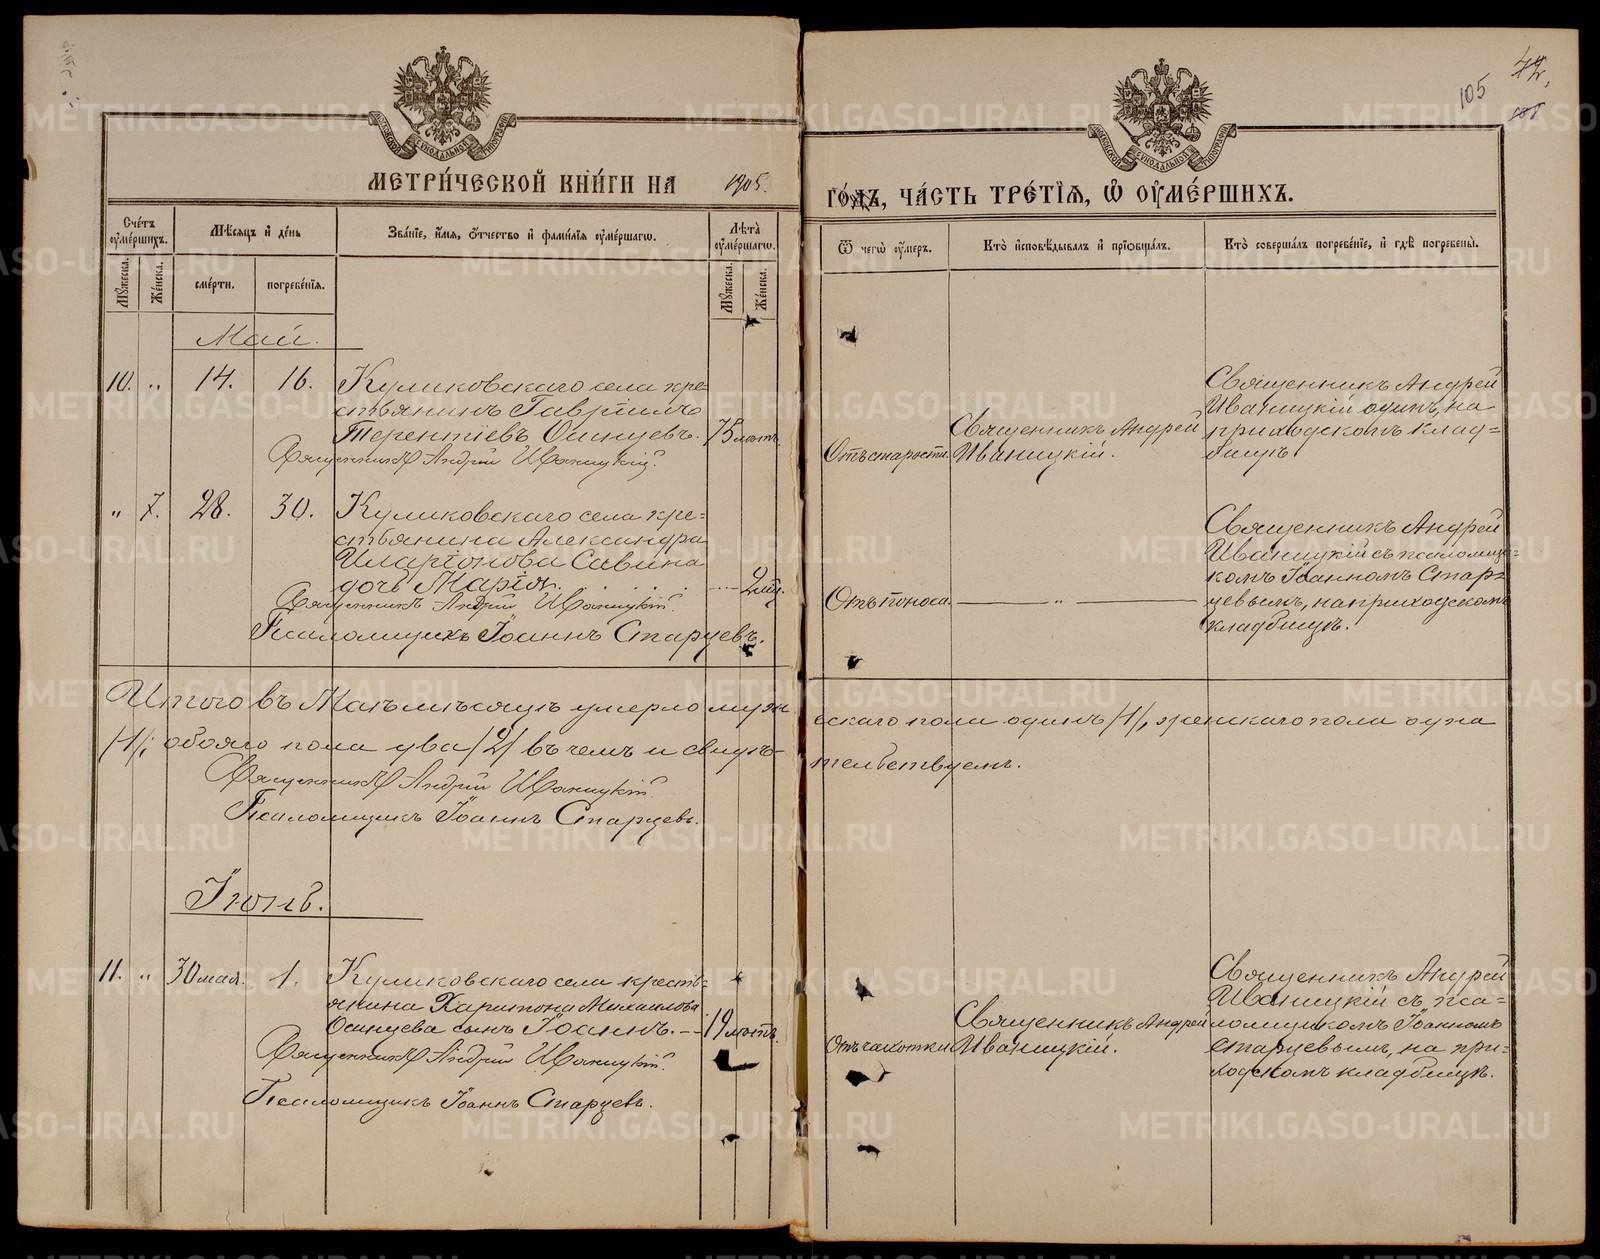 42.
105
МЕТРИ́ЧЕСКОЙ КНИ́ГИ НА 1905. ГО́ДЪ, ЧА́СТЬ ТРЕ́ТІѦ, Ѡ҆ ОУ҆МЕ́РШИХЪ.
МОСКОВСКОЙ СѴНОДАЛЬНОЙ ТИПОГРАФІИ
МОСКОВСКОЙ СѴНОДАЛЬНОЙ ТИПОГРАФІИ
Сче́тъ оу҆ме́ршихъ.
Мꙋжеска.
Же́нска.
Мѣ́сяцъ и҆ де́нь
сме́рти.
погребе́нїя.
Зва́нїе, и҆́мя, ѻ҆́тчество и҆ фами́лїя оу҆ме́ршагѡ.
Лѣ́та оу҆ме́ршагѡ.
Мꙋжеска.
Же́нска.
Ѿ чегѡ̀ оу҆́меръ.
Кто̀ и҆сповѣ́дывалъ и҆ прїѡбща́лъ.
Кто̀ соверша́лъ погребе́нїе, и҆ гдѣ̀ погребены̀.
Май.
10. „ 14. 16. Куликовскаго села кре=
стьянинъ Гавріилъ
Терентіевъ Осинцевъ. 75 лѣтъ.
Священникъ Андрей Иваницкій.
Отъ старости.
Священникъ Андрей
Иваницкій.
Священникъ Андрей
Иваницкій одинъ, на
приходскомъ клад=
бищѣ
„ 7. 28. 30. Куликовскаго села кре=
стьянина Александра
Иларіонова Савина
дочь Марія. 2 мц.
Священникъ Андрей Иваницкій.
Псаломщикъ Іоаннъ Старцевъ.
Отъ поноса. — „ —
Священникъ Андрей
Иваницкій съ псаломщи=
комъ Іоанномъ Стар=
цевымъ, на приходскомъ
кладбищѣ.
Итого въ Маѣ мѣсяцѣ умерло муж ескаго пола одинъ /1/, женскаго пола одна
/1/; обояго пола два /2/ въ чемъ и свидѣ- тельствуемъ.
Священникъ Андрей Иваницкій.
Псаломщикъ Іоаннъ Старцевъ.
Іюнь.
11. „ 30 мая. 1. Куликовскаго села кресть=
янина Харитона Михаилова
Осинцева сынъ Іоаннъ. — 19 лѣтъ.
Священникъ Андрей Иваницкій.
Псаломщикъ Іоаннъ Старцевъ.
Отъ чахотки
Священникъ Андрей
Иваницкій.
Священникъ Андрей
Иваницкій съ пса=
ломщикомъ Іоанномъ
Старцевымъ, на при=
ходскомъ кладбищѣ.
METRIKI.GASO-URAL.RU